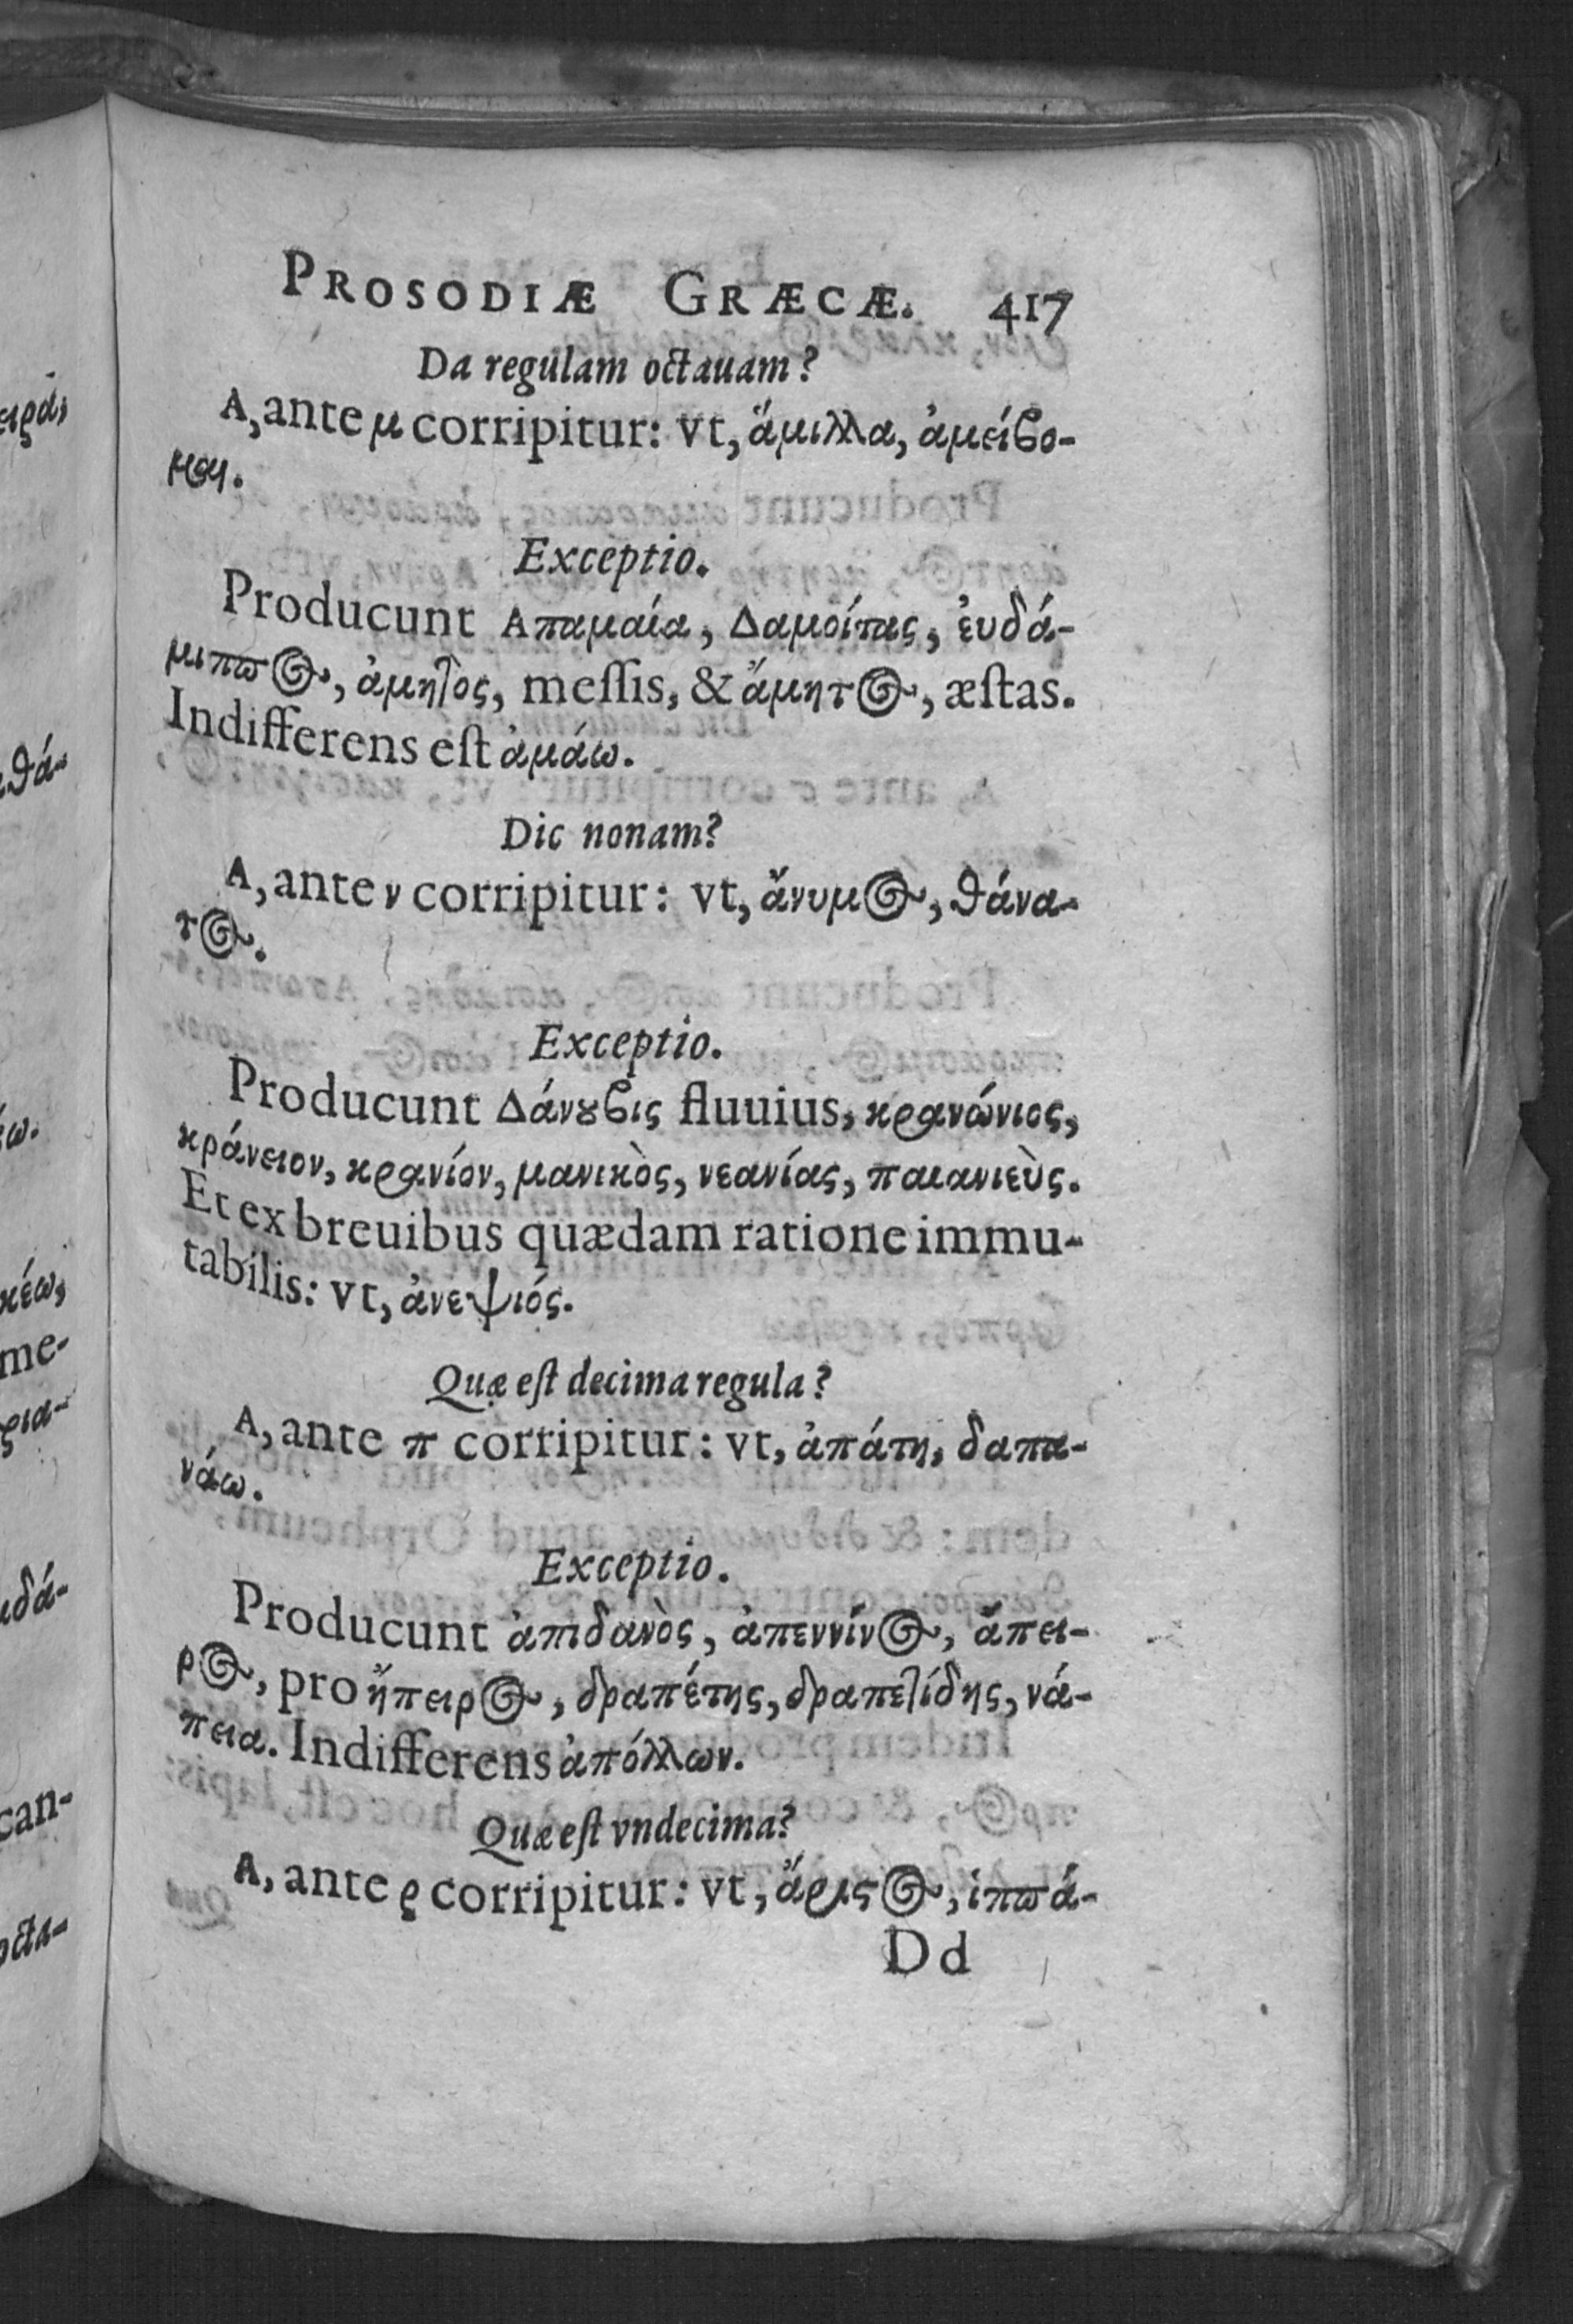 PROSODIÆ GRÆCÆ. 417
Da regulam octauam?
A, ante μ corripitur: vt, ἅμιλλα, ἀμείβο-
μαι.
Exceptio.
Producunt Απαμαία, Δαμοίτας, ἐυδά-
μιππος, ἀμητὸς, meſſis, & ἄμητος, æſtas.
Indifferens eſt ἀμάω.
Dic nonam?
A, ante ν corripitur: vt, ἄνυμος, θάνα-
τος.
Exceptio.
Producunt Δάνουβις fluuius, κρανώνιος,
κράνειον, κρανίον, μανικὸς, νεανίας, παιανιεὺς.
Et ex breuibus quædam ratione immu-
tabilis: vt, ἀνεψιός.
Quæ eſt decima regula?
A, ante π corripitur: vt, ἀπάτη, δαπα-
νάω.
Exceptio.
Producunt ἀπιδανὸς, ἀπεννίνος, ἄπει-
ρος, pro ἤπειρος, δραπέτης, δραπετίδης, νά-
πεια. Indifferens ἀπόλλων.
Quæ eſt vndecima?
A, ante ρ corripitur: vt, ἄριστος, ἱππά-
Dd
ειρά,
θά-
ω.
κέω,
me-
ρια-
υδά-
can-
octa-